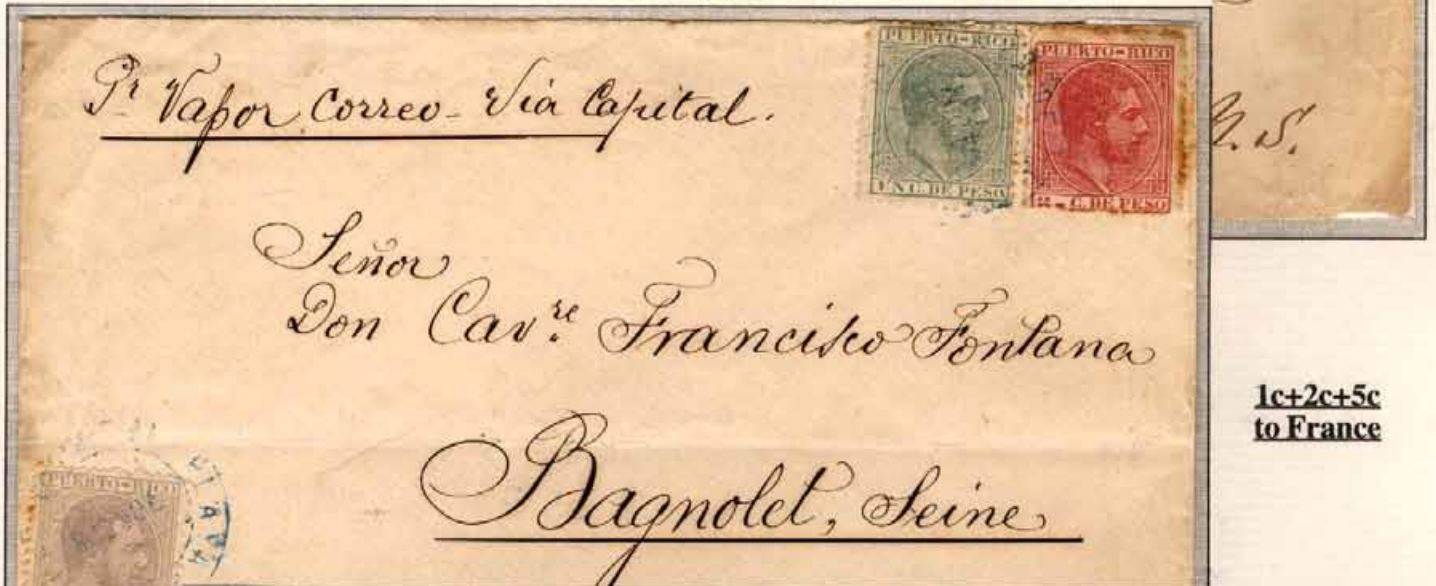 Pr Vapor Correo - Via Capital.
PUERTO-RICO
UN C. DE PESO
PUERTO-RICO
2 C. DE PESO
S.
Señor
Don Cav.re Francisco Fontana
Bagnolet, Seine
PUERTO-RICO
1c+2c+5c
to France